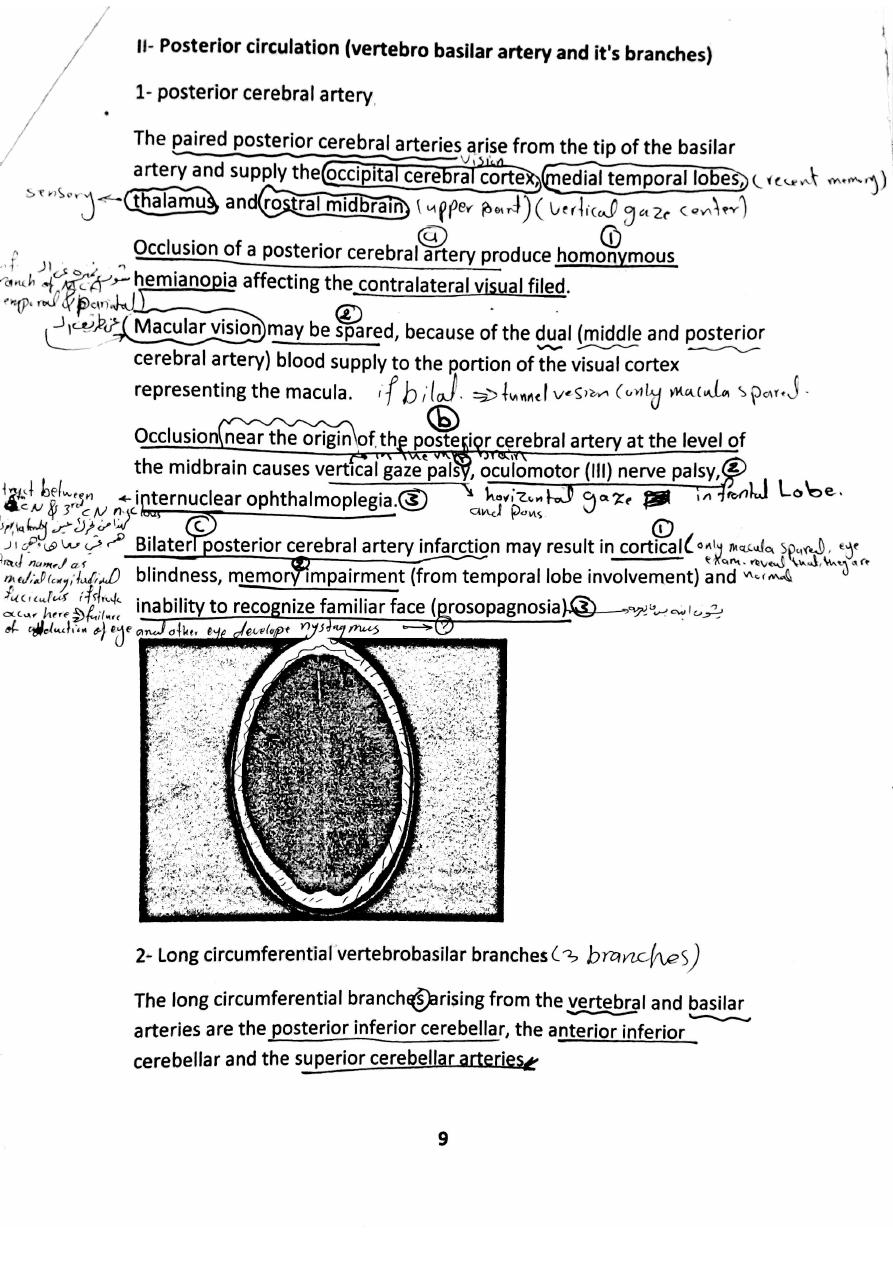 II- Posterior circulation (vertebro basilar artery and it's branches)
1- posterior cerebral artery
The paired posterior cerebral arteries arise from the tip of the basilar
vision
artery and supply the occipital cerebral cortex, medial temporal lobes, (recent memory)
sensory ← thalamus, and rostral midbrain, (upper part) (vertical gaze center)
a 1
Occlusion of a posterior cerebral artery produce homonymous
hemianopia affecting the contralateral visual filed.
2
(Macular vision) may be spared, because of the dual (middle and posterior
cerebral artery) blood supply to the portion of the visual cortex
representing the macula. if bilat. ⇒ tunnel vesion (only macula spared.
b
Occlusion (near the origin) of the posterior cerebral artery at the level of
in the mid brain
the midbrain causes vertical gaze palsy, oculomotor (III) nerve palsy, 2
← internuclear ophthalmoplegia. 3 horizontal gaze in frontal Lobe.
and Pons
c 1
Bilaterl posterior cerebral artery infarction may result in cortical (only macula spared, eye
exam. reveal that they are
blindness, memory impairment (from temporal lobe involvement) and normal
2
inability to recognize familiar face (prosopagnosia). 3
tract between
CN & 3rd CN nucleus
tract named as
medial longitudinal
fuciculus if stroke
occur here ⇒ failure
of adduction of eye and other eye develope nystagmus
2- Long circumferential vertebrobasilar branches (3 branches)
The long circumferential branches arising from the vertebral and basilar
arteries are the posterior inferior cerebellar, the anterior inferior
cerebellar and the superior cerebellar arteries.
9